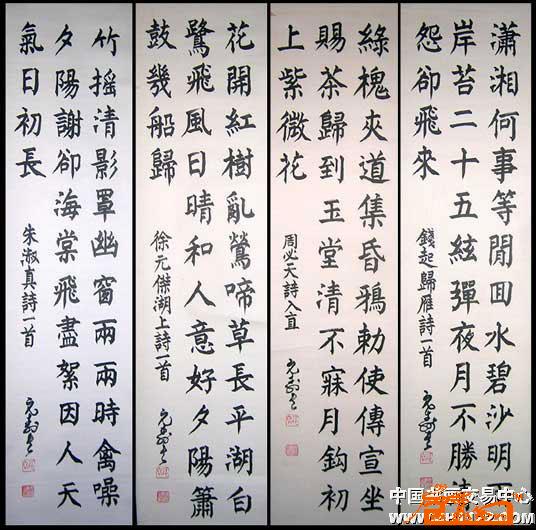 瀟湘何事等閒囬水碧沙明兩
岸苔二十五絃彈夜月不勝清
怨卻飛來
錢起歸雁詩一首
綠槐夾道集昏鴉勅使傳宣坐
賜茶歸到玉堂清不寐月鈎初
上紫微花
周必大詩入直
花開紅樹亂鶯啼草長平湖白
鷺飛風日晴和人意好夕陽簫
鼓幾船歸
徐元傑湖上詩一首
竹搖清影罩幽窗兩兩時禽噪
夕陽謝卻海棠飛盡絮因人天
氣日初長
朱淑真詩一首
中国书画交易中心